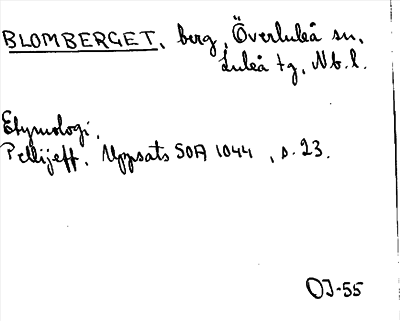 BLOMBERGET, berg, Överluleå sn,
Luleå tg, Nb. l.
Etymologi.
Pellijeff, Uppsats SOA 1044, s. 23.
OJ-55